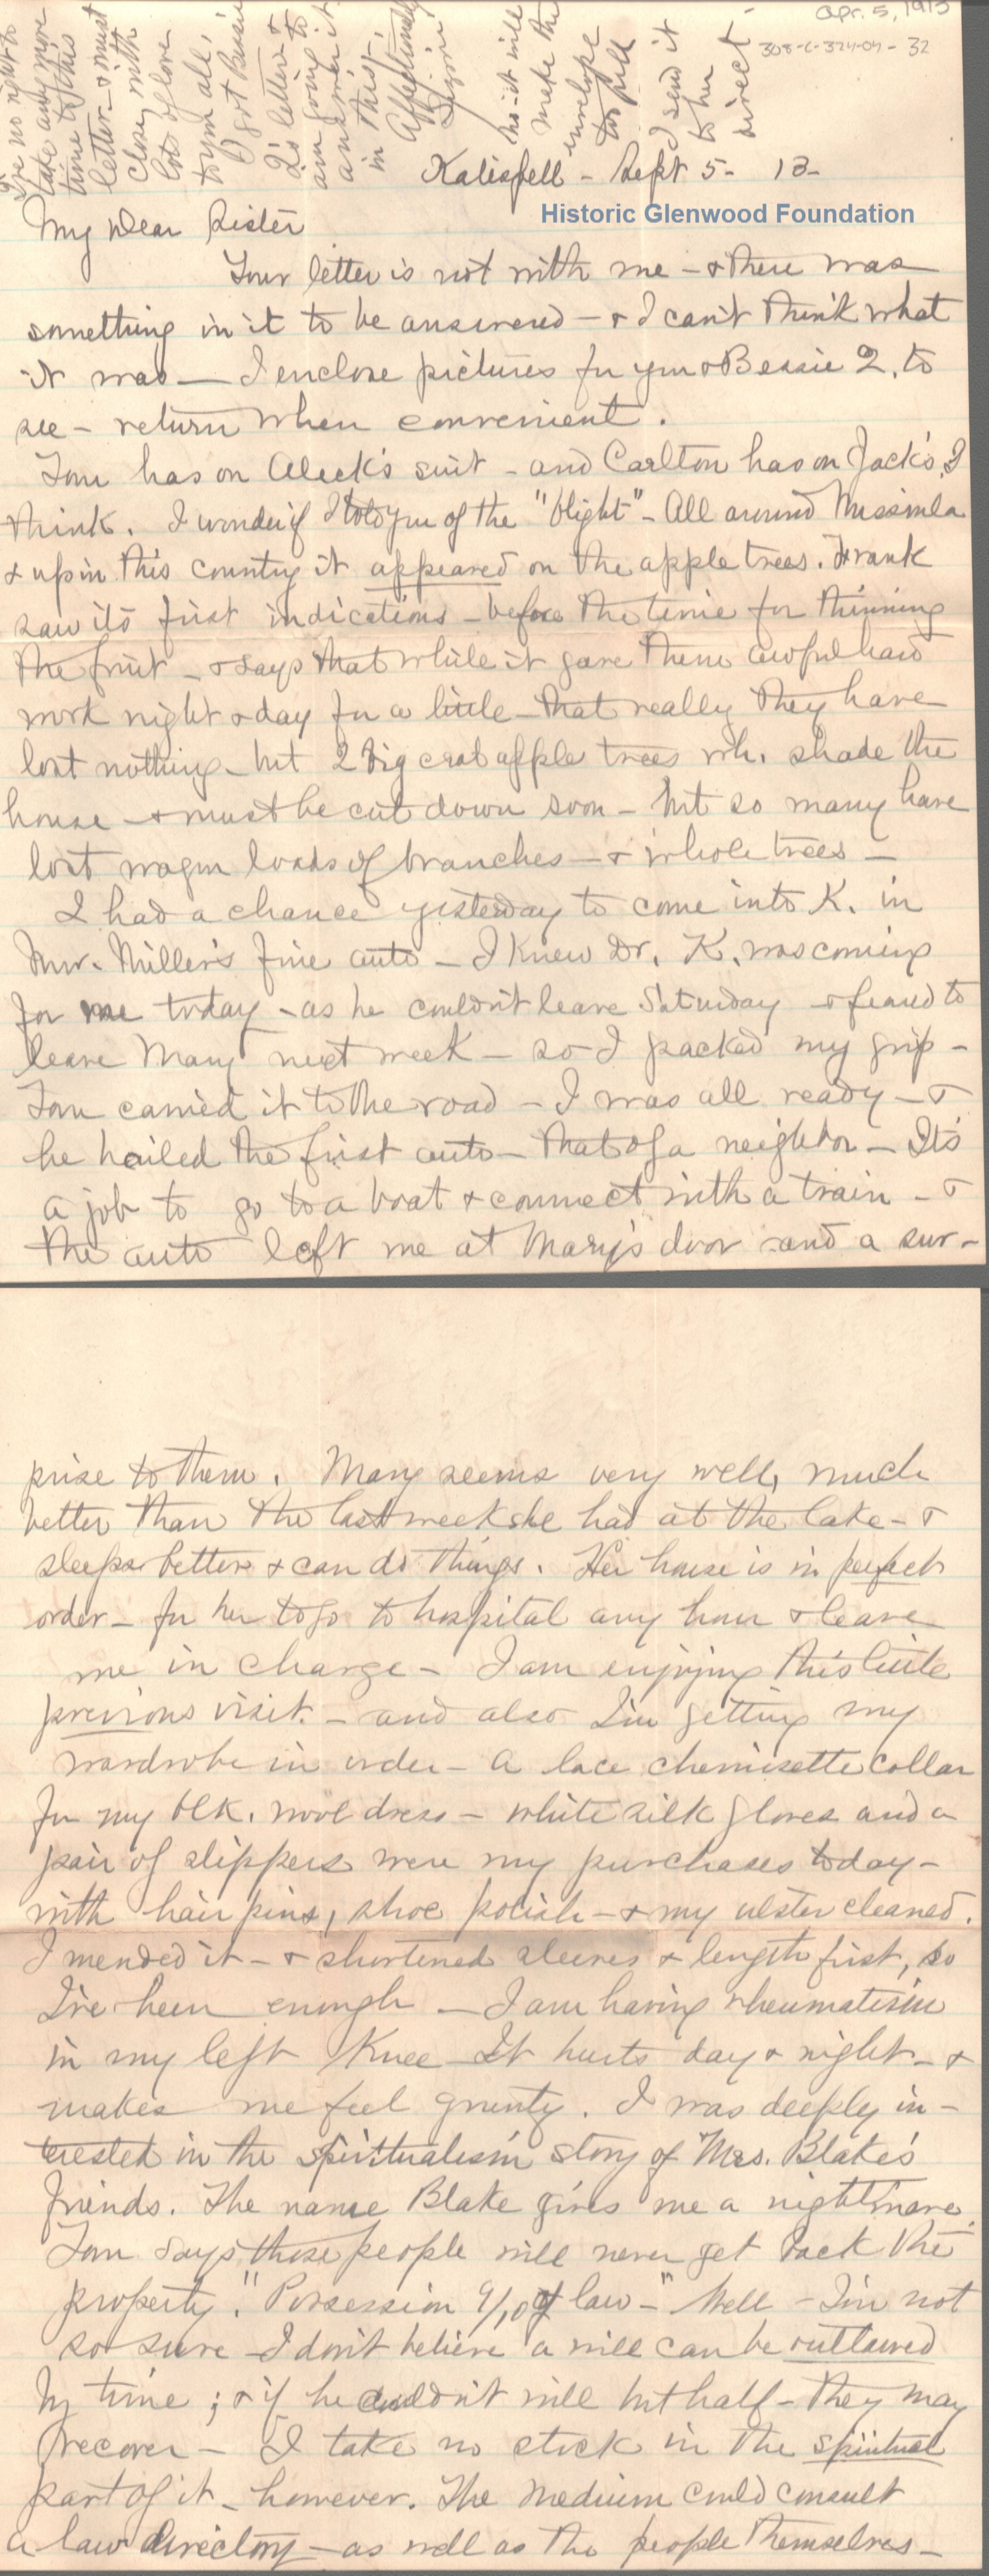 Apr. 5, 1913
308-C-324-04-32
I've no right to
take any more
time to this
letter - & must
close with
lots of love
to you all,
I got Bessie
2's letter &
am going to
answer it
in this,
Affectionately
no - it will
make the
envelope
too full
I send it
to her
direct -
Kalispell - Sept 5 - 13 -
Historic Glenwood Foundation
My Dear Sister
Your letter is not with me - & there was
something in it to be answered - & I can't think what
it was - I enclose pictures for you & Bessie 2. to
see - return when convenient.
Tom has on Aleck's suit - and Carlton has on Jack's, I
think. I wonder if I told you of the "blight" - All around Missoula
& up in this country it appeared on the apple trees. Frank
saw its first indications - before the time for thinning
the fruit - & says that while it gave them awful hard
work night & day for a little - that really they have
lost nothing - but 2 big crab apple trees wh. shade the
house - & must be cut down soon - but so many have
lost wagon loads of branches - & whole trees -
I had a chance yesterday to come into K. in
Mr. Miller's fine auto - I knew Dr. K. was coming
for me today - as he couldn't leave Saturday & feared to
leave Mary next week - so I packed my grip -
Tom carried it to the road - I was all ready - &
he hailed the first auto - that of a neighbor - It's
a job to go to a boat & connect with a train - &
the auto left me at Mary's door and a sur-
prise to them. Mary seems very well, much
better than the last week she had at the lake - &
sleeps better & can do things. Her house is in perfect
order - for her to go to hospital any hour & leave
me in charge - I am enjoying this little
previous visit. - and also I'm getting my
wardrobe in order - a lace chemisette collar
for my blk. wool dress - white silk gloves and a
pair of slippers were my purchases today -
with hair pins, shoe polish - & my ulster cleaned.
I mended it - & shortened sleeves & length first, so
I've been enough - I am having rheumatism
in my left knee - It hurts day & night - &
makes me feel grunty. I was deeply in-
terested in the spiritualism story of Mrs. Blake's
friends. The name Blake gives me a nightmare.
Tom says those people will never get back the
property. "Possession 9/10 of law - " Well - I'm not
so sure - I don't believe a will can be outlawed
by time; & if he couldn't will but half - they may
recover - I take no stock in the spiritual
part of it - however. The medium could consult
a law directory - as well as the people themselves -